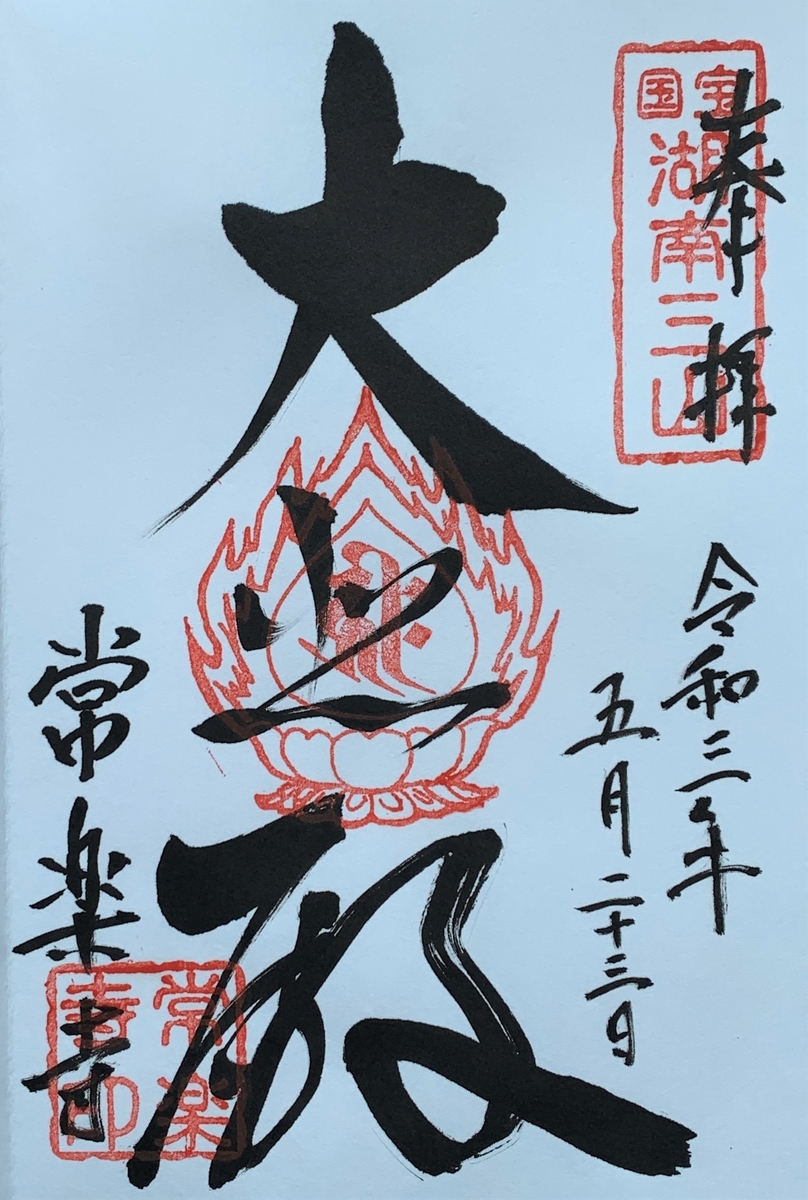 奉拝
国宝
湖南三山
令和三年
五月二十三日
大悲殿
常楽寺
常楽寺印